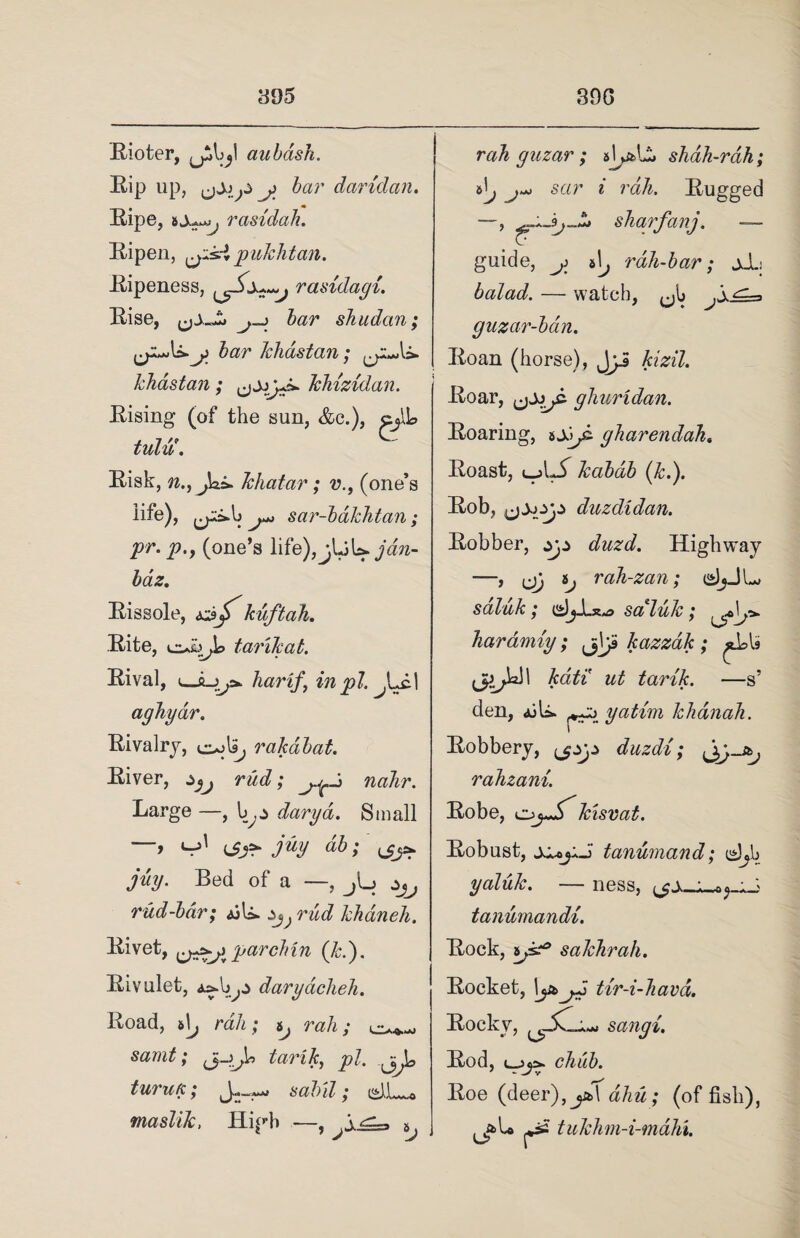 395
396
Rioter, اوباش aubásh.
Rip up, بر دریدن bar darídan.
Ripe, رسیده rasídah.
Ripen, پختن pukhtan.
Ripeness, رسیدگی rasídagí.
Rise, بر شدن bar shudan;
بر خاستن bar khástan; خاستن
khástan; خیزیدن khízídan.
Rising (of the sun, &c.), طلوع
tulú'.
Risk, n., خطر khatar; v., (one's
life), سر باختن sar-bákhtan;
pr. p., (one's life), جانباز ján-
báz.
Rissole, کوفته kúftah.
Rite, طریقت taríkat.
Rival, حریف haríf, in pl. اغیار
aghyár.
Rivalry, رقابت rakábat.
River, رود rúd; نهر nahr.
Large —, دریا daryá. Small
—, جوی آب júy áb; جوی
júy. Bed of a —, رود بار
rúd-bár; رود خانه rúd kháneh.
Rivet, پرچین parchín (k.).
Rivulet, دریاچه daryácheh.
Road, راه ráh; ره rah; سمت
samt; طریق tarík, pl. طرق
turuk; سبیل sabíl; مسلک
maslik. High —, ره گذر
rah guzar; شاهراه sháh-ráh;
سر راه sar i ráh. Rugged
—, شرفنج sharfanj. —
guide, راه بر ráh-bar; بلد
balad. — watch, گذر بان
guzar-bán.
Roan (horse), قزل kizil.
Roar, غریدن ghurídan.
Roaring, غرنده gharendah.
Roast, کباب kabáb (k.).
Rob, دزدیدن duzdídan.
Robber, دزد duzd. Highway
—, ره زن rah-zan; سالوک
sálúk; صعلوک sa'lúk; حرامی
harámíy; قزاق kazzák; قاطع
الطریق káti' ut tarík. —s'
den, یتیم خانه yatím khánah.
Robbery, دزدی duzdí; رهزنی
rahzaní.
Robe, کسوت kisvat.
Robust, تنومند tanúmand; یالوک
yalúk. — ness, تنومندی
tanúmandí.
Rock, صخره sakhrah.
Rocket, تیر هوا tír-i-havá.
Rocky, سنگی sangí.
Rod, چوب chúb.
Roe (deer), آهو áhú; (of fish),
تخم ماهی tukhm-i-máhí.